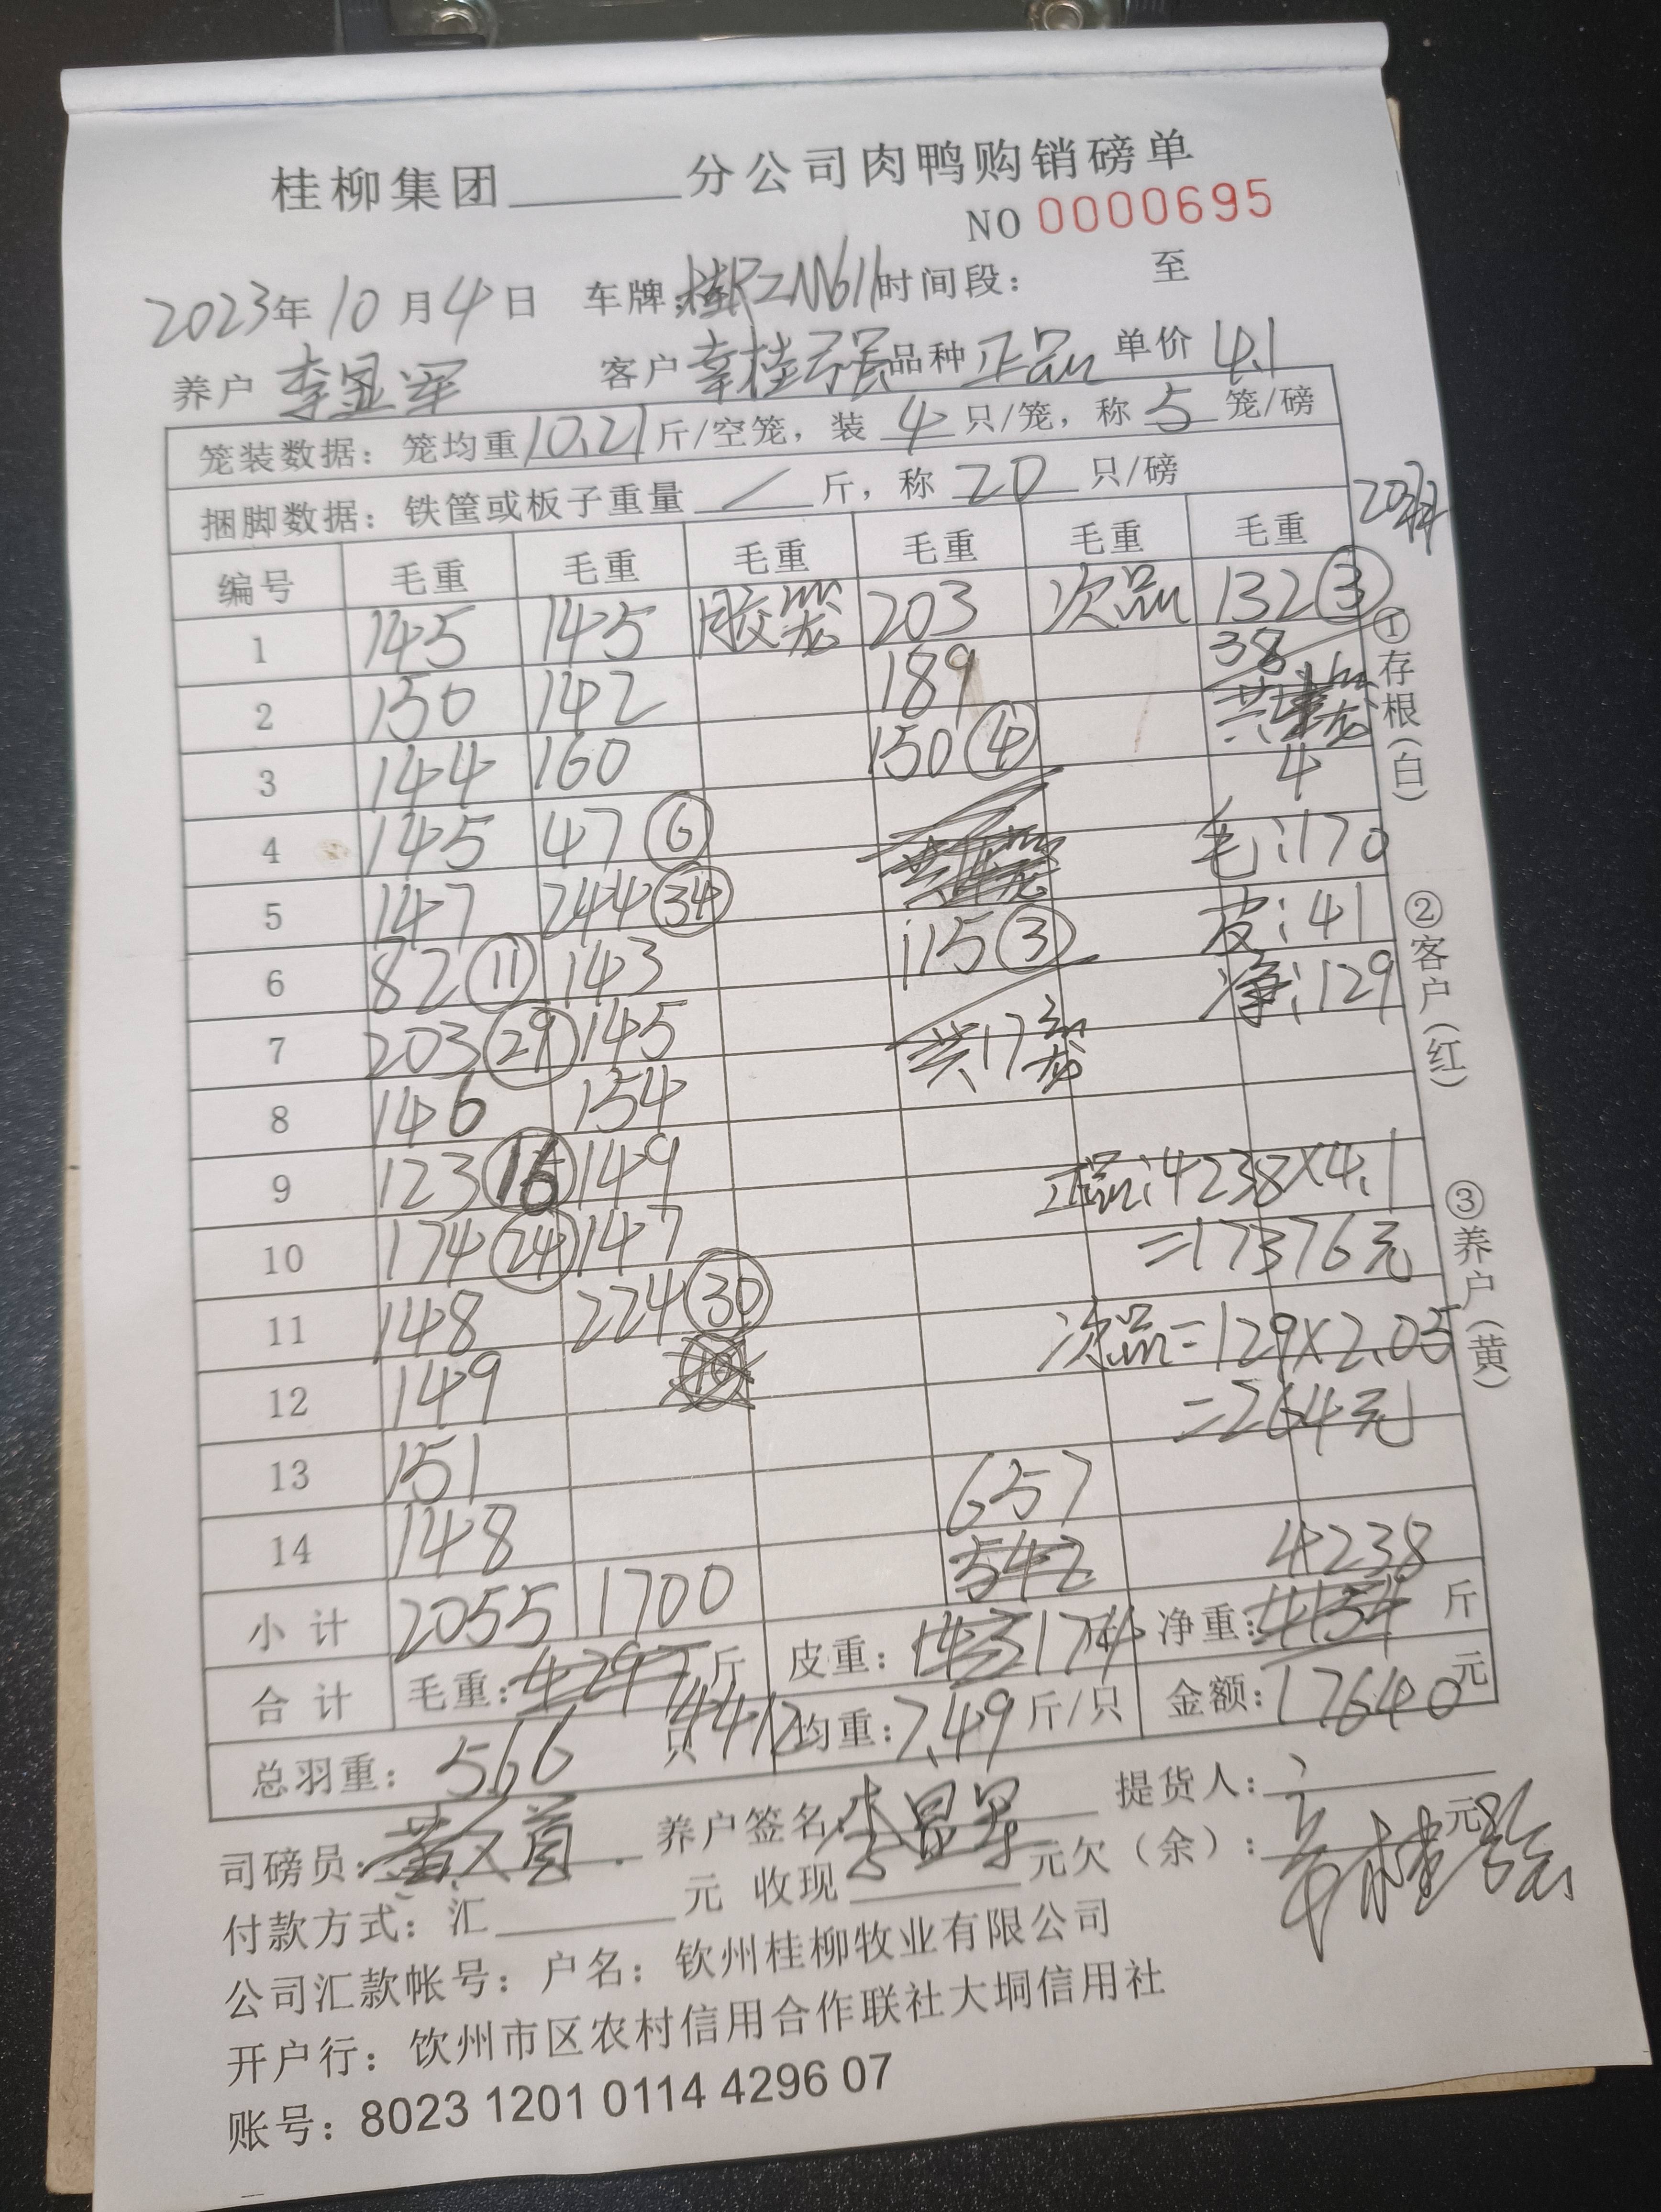 桂柳集团______分公司肉鸭购销磅单
NO 0000695
2023年10月4日 车牌:桂RZN611时间段: 至
养户 李显军 客户 品种 正品 单价 4.1
笼装数据:笼均重10.21斤/空笼,装 4 只/笼,称 5 笼/磅
捆脚数据:铁筐或板子重量 / 斤,称 20 只/磅
编号 毛重 毛重 毛重 毛重 毛重 毛重
1 145 145 胶笼 203 次品 132③
2 150 142 189 38
3 144 160 150④ 4
4 145 47⑥ 毛:170
5 147 244㉞ 115③ 皮:41
6 82⑪ 143 净:129
7 203㉙ 145 共17笼
8 146 154
9 123⑯ 149 正品:4238×4.1
10 174㉔ 147 =17376元
11 148 224㉚ 次品=129×2.05
12 149 =264元
13 151 657
14 148 542 4238
小计 2055 1700
合计 毛重:4297斤 4412 皮重:143 174斤 净重:4154斤
总羽重:566 只 均重:7.49斤/只 金额:17640元
司磅员: 养户签名:李显军 提货人:
付款方式:汇______元 收现______元欠(余):______元
公司汇款帐号:户名:钦州桂柳牧业有限公司
开户行:饮州市区农村信用合作联社大垌信用社
账号:8023 1201 0114 4296 07
①存根(白)
②客户(红)
③养户(黄)